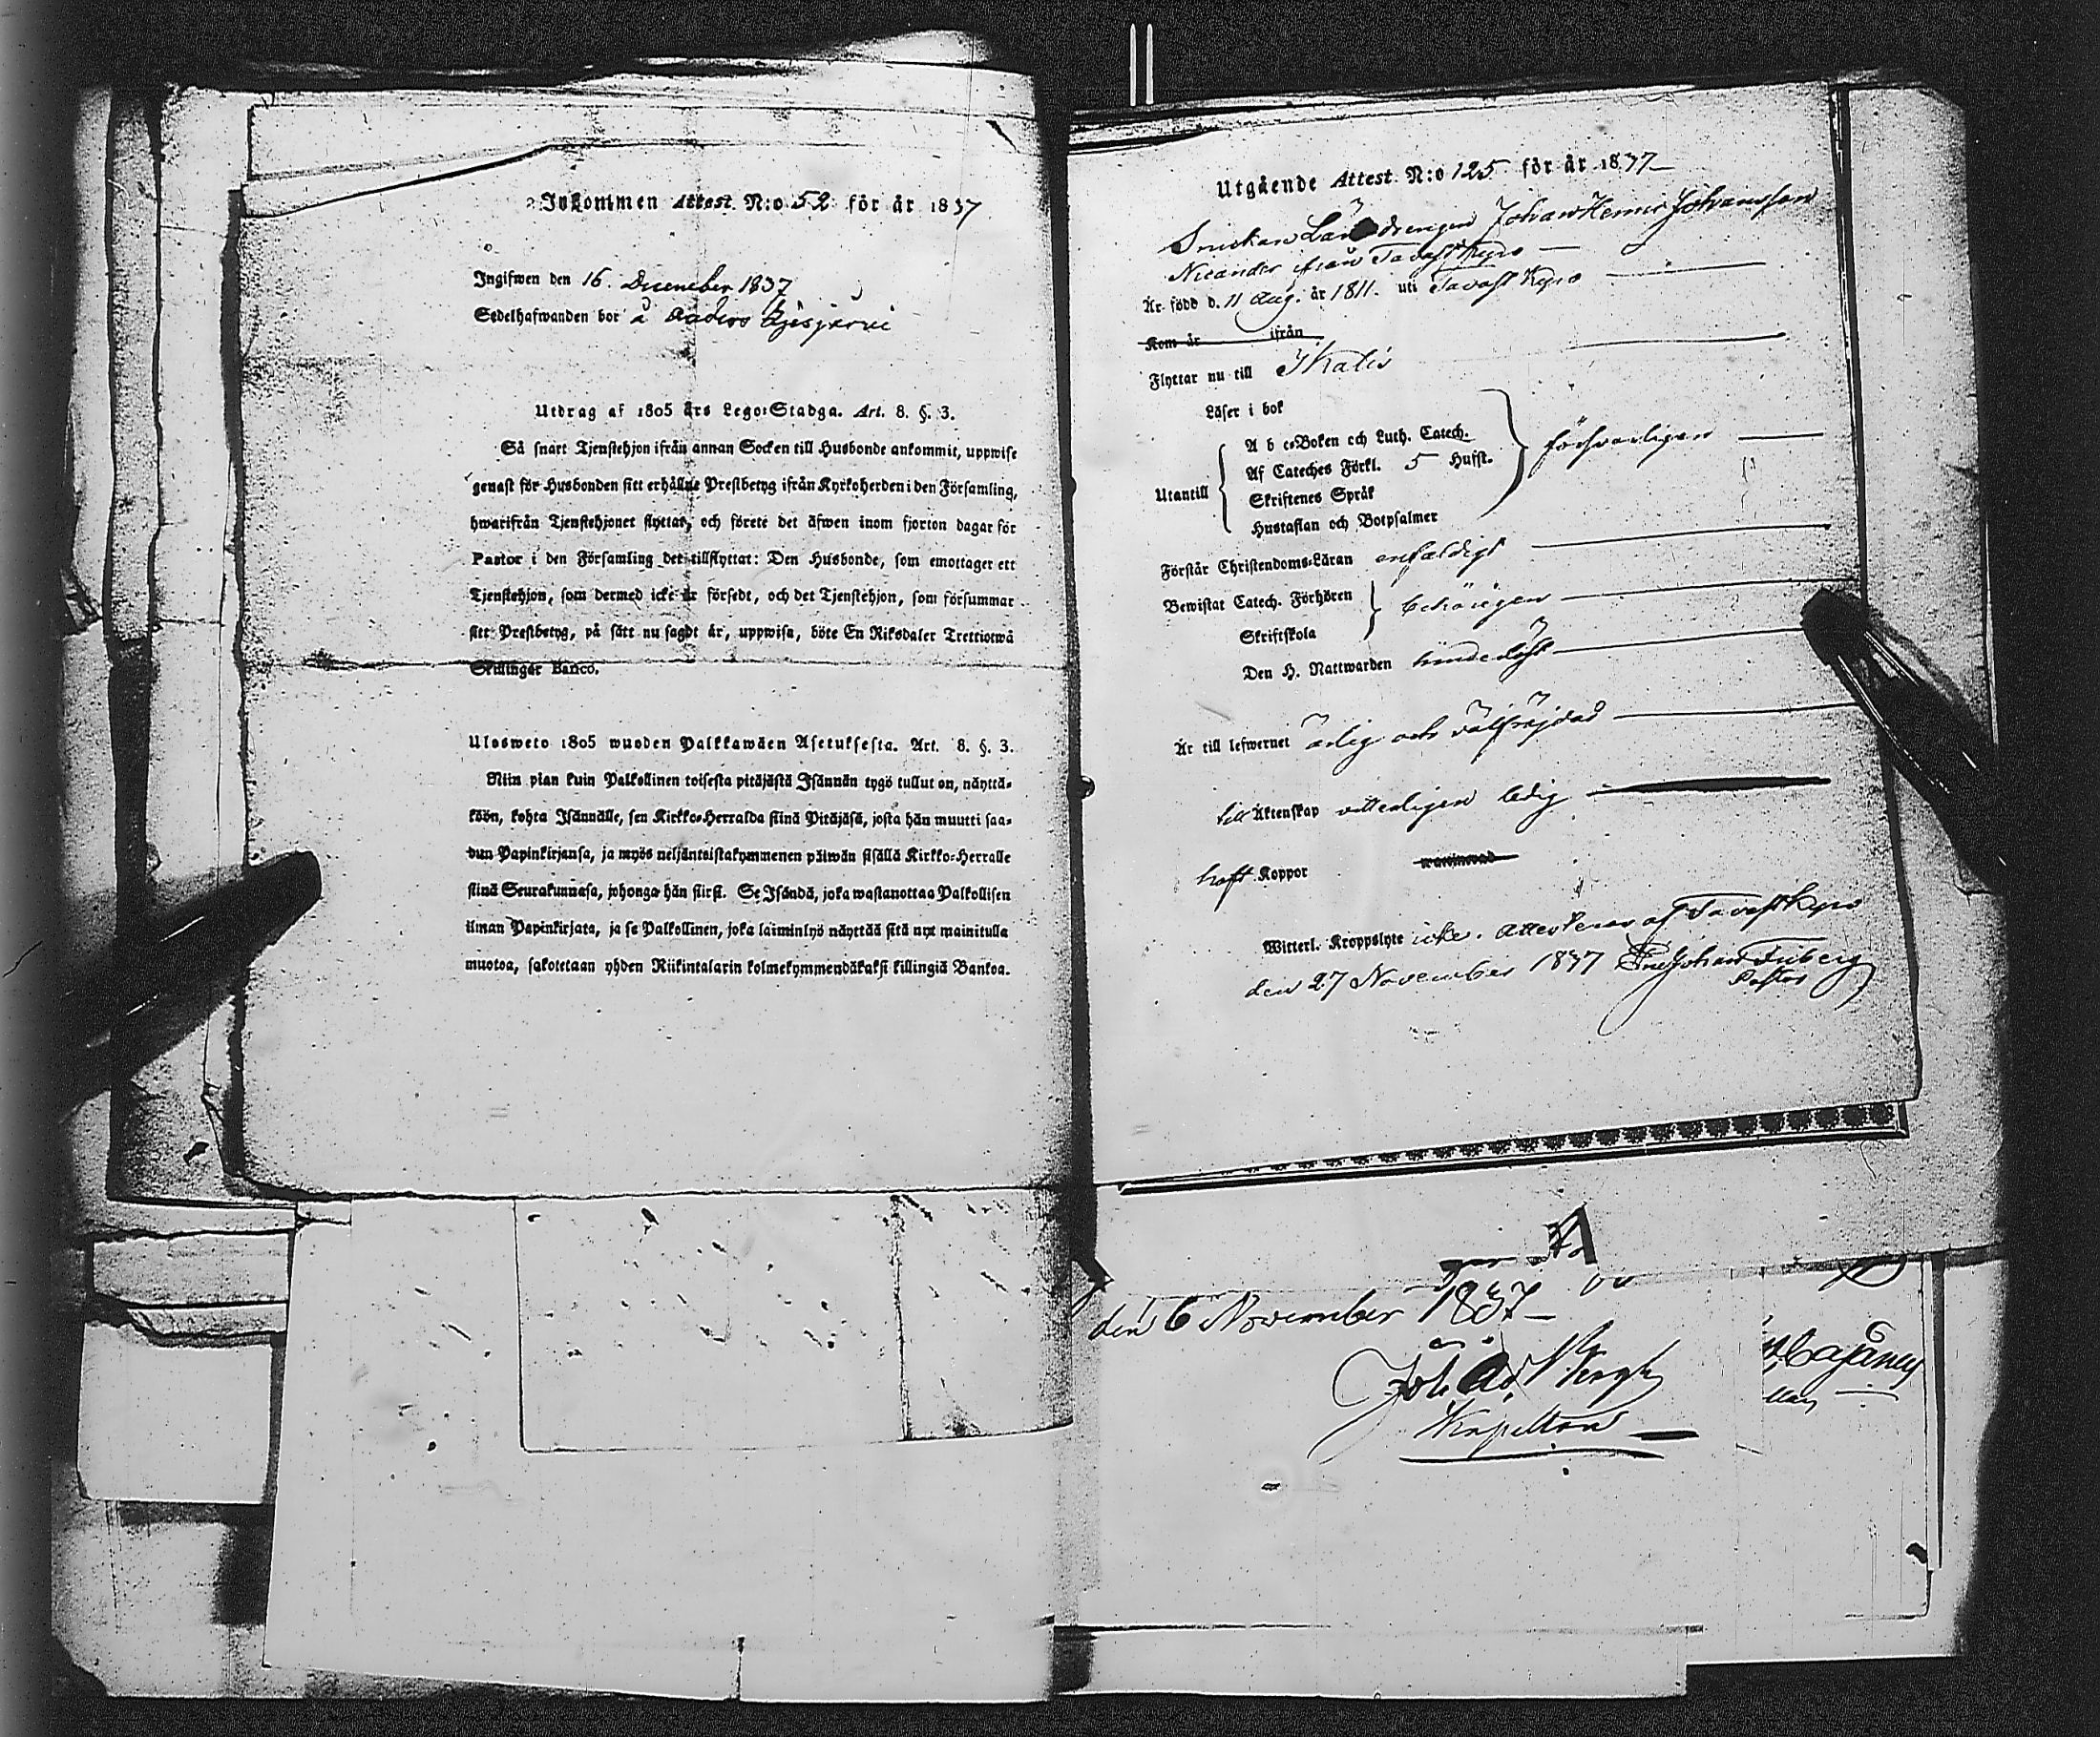 Inkommen Attest N:o 52 för år 1837
Ingifwen den 16. December 1837
Sedelhafwanden bor å Anders
Utdrag af 1805 års Lego-Stadga. Art. 8. §. 3.
Så snart Tjenstehjon ifrån annan Socken till Husbonde ankommit, uppwise
genast för Husbonden sitt erhållne Prestbetyg ifrån Kyrkoherden i den Församling,
hwarifrån Tjenstehjonet flyttat, och förete det äfwen inom fjorton dagar för
Pastor i den Församling det tillflyttat: Den Husbonde, som emottager ett
Tjenstehjon, som dermed icke är försedt, och det Tjenstehjon, som försummar
sitt Prestbetyg, på sätt nu sagdt är, uppwisa, böte En Riksdaler Trettiotwå
Skillingar Banco.
Ulosweto 1805 wuoden Palkkawäen Asetuksesta. Art. 8. §. 3.
Niin pian kuin Palkollinen toisesta pitäjästä Isännän tygö tullut on, näyttä-
köön, kohta Isännälle, sen Kirkko-Herralda siinä Pitäjäsä, josta hän muutti saa-
dun Papinkirjansa, ja myös neljäntoistakymmenen päiwän sisällä Kirkko-Herralle
siinä Seurakunnasa, johonga hän siirsi. Se Isändä, joka wastanottaa Palkollisen
ilman Papinkirjata, ja se Palkollinen, joka laiminlyö näyttää sitä nyt mainitulla
muotoa, sakotetaan yhden Riikintalarin kolmekymmendäkaksi killingiä Bankoa.
Utgående Attest N:o 125 för år 1837
Johan Henric Johansson
Nicander ifrån Tavastkyro
Är född d. 11 Aug. år 1811. uti Tavastkyro
Kom år ifrån
Flyttar nu till Ikalis
Läser i bok
A b c-Boken och Luth. Catech.
Af Cateches Förkl. 5 Hufst.
Utantill
Skriftenes Språk
Hustaflan och Botpsalmer
försvarligen
Förstår Christendoms-Läran enfaldigt
Bewistat Catech. Förhören
Skriftskola
behörigen
Den H. Nattwarden hinderlöst
Är till lefwernet ärlig och välfrejdad
till Äktenskap vitterligen ledig
haft Koppor
Witterl. Kroppslyte icke. Attesteras af Tavastkyro
den 27 November 1837 Johan Friberg
Pastor
den 6 November 1837
Joh. Ad. Bergh
Kapellan
Cajanus